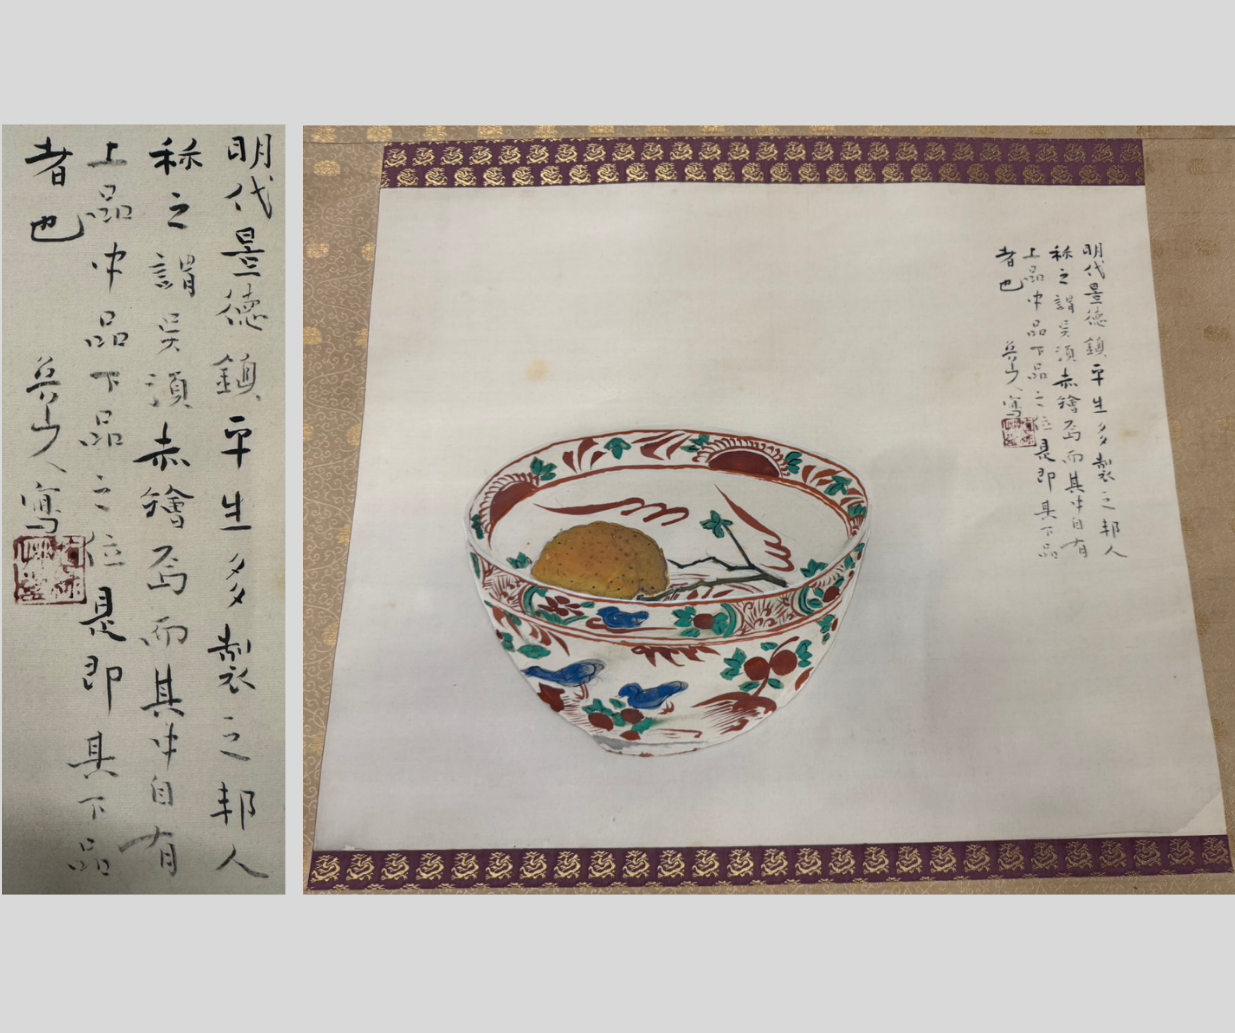 明代景徳鎮平生多製之邦人
称之謂呉須赤繪焉而其中自有
上品中品下品之位是即其下品
者也 魯山人寫
明代景徳鎮平生多製之邦人
称之謂呉須赤繪焉而其中自有
上品中品下品之位是即其下品
者也 魯山人寫